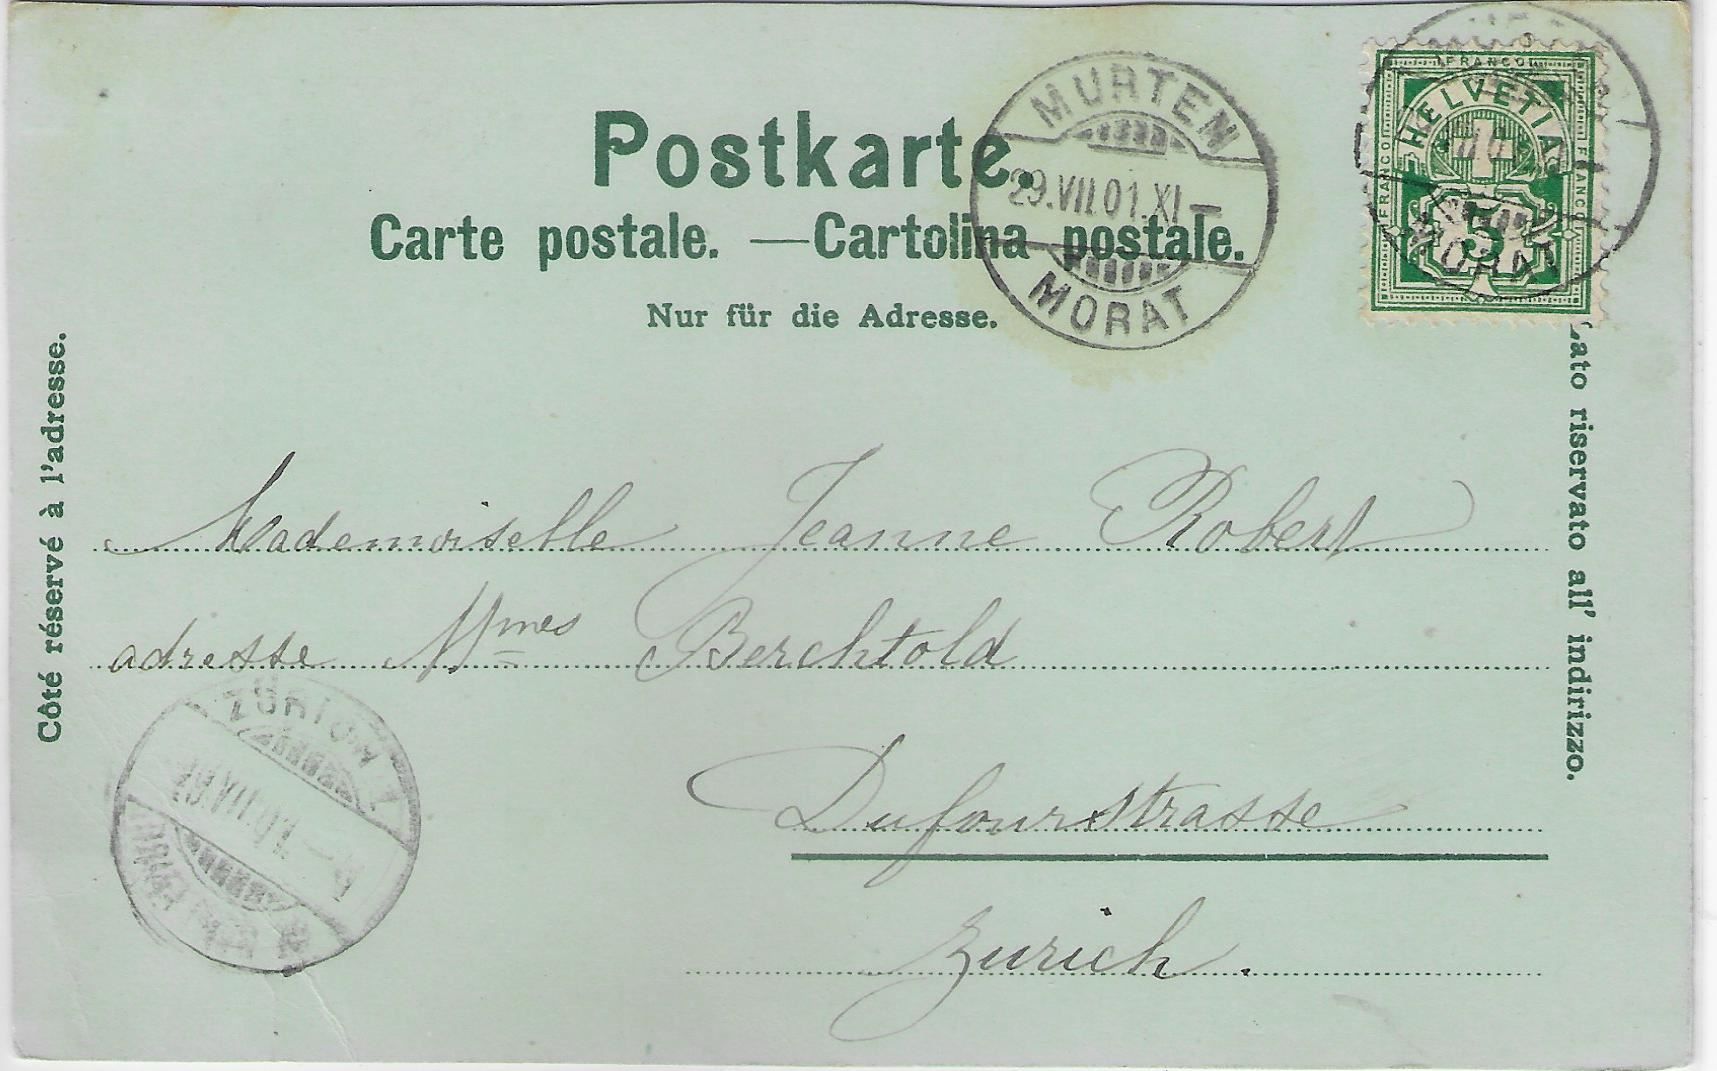 Postkarte.
Carte postale. — Cartolina postale.
Nur für die Adresse.
MURTEN
29.VII.01.XI—
MORAT
FRANCO
FRANCO
FRANCO
HELVETIA
5
MORAT
Côté réservé à l'adresse.
Lato riservato all' indirizzo.
Mademoiselle Jeanne Robert
adresse Mmes Berchtold
Dufourstrasse
Zurich.
ZÜRICH